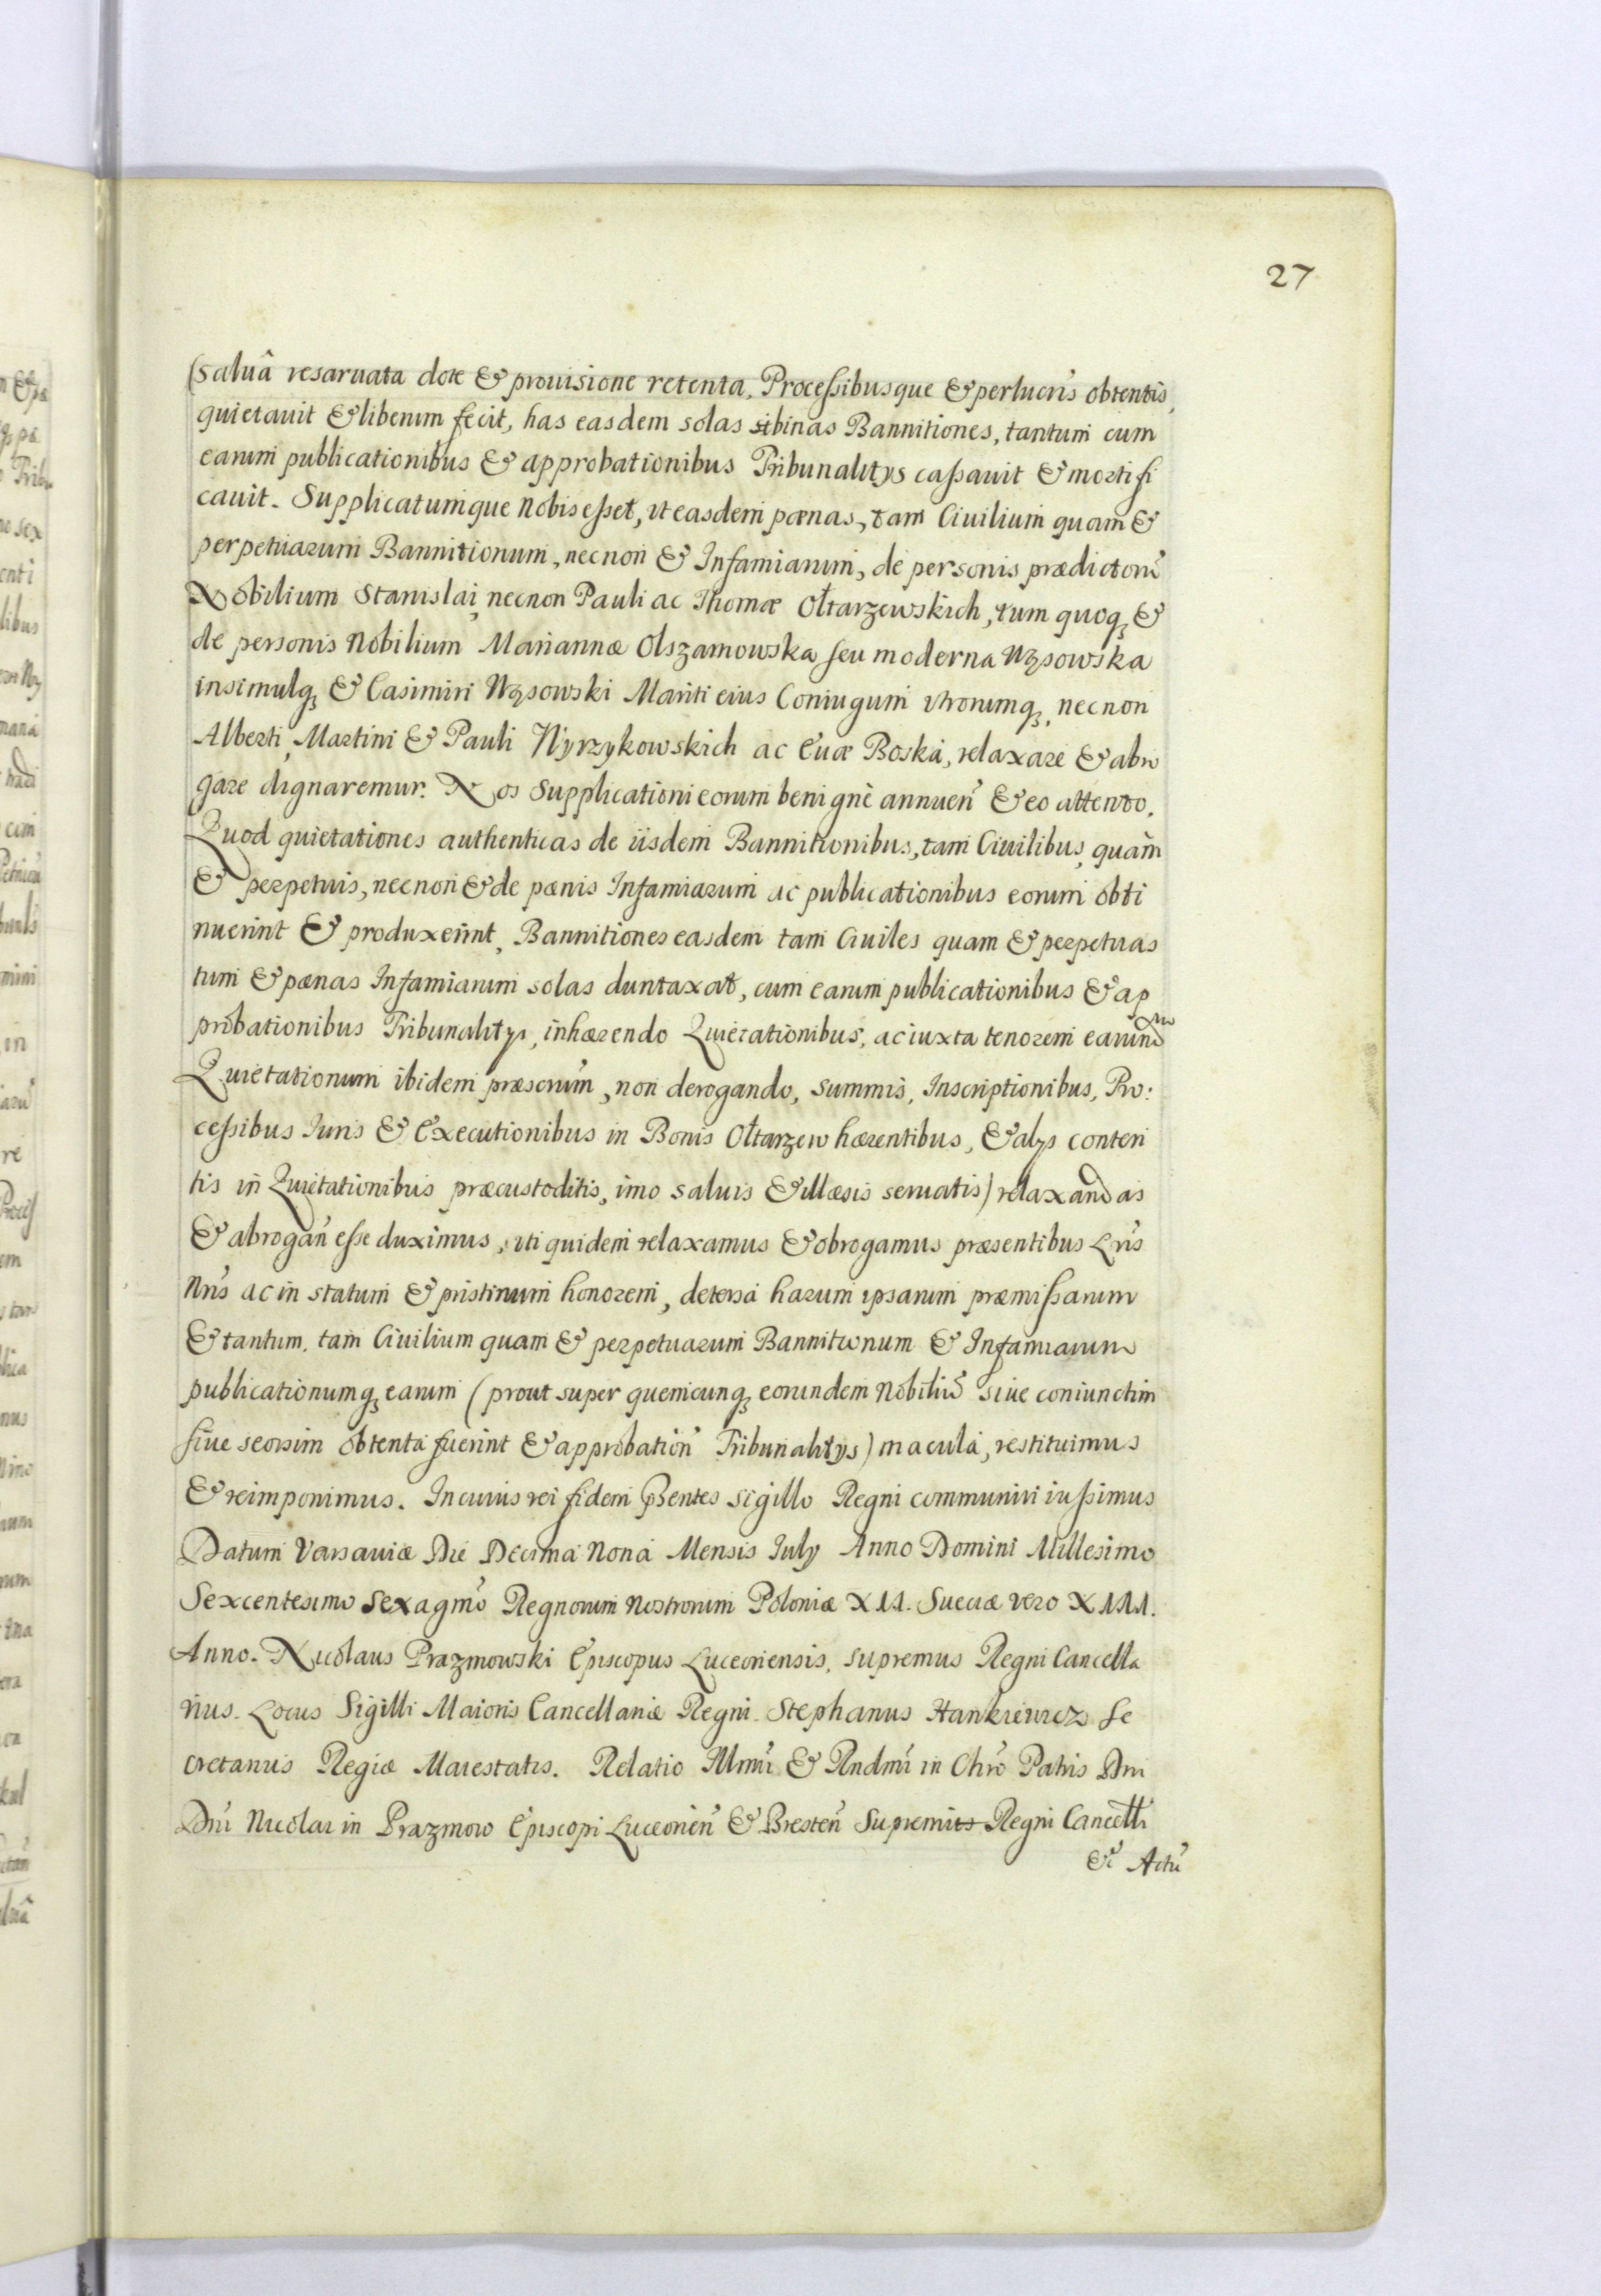 27
(saluâ resaruata dote & prouisione retenta, Processibusque & perlucris obtentis,
quietauit & liberum fecit, has easdem solas binas Bannitiones, tantum cum
earum publicationibus & approbationibus Tribunalitys cassauit & mortifi
cauit. Supplicatumque Nobis esset, vt easdem pœnas, tam Ciuilium quam &
perpetuarum Bannitionum, necnon & Infamiarum, de personis prædictorũ
Nobilium Stanislai, necnon Pauli ac Thomæ Ołtarzewskich, tum quoq, &
de personis Nobilium Mariannæ Olszamowska seu moderna Wzsowska
insimulq, & Casimiri Wzsowski Mariti eius Coniugum vtrorumq, necnon
Alberti, Martini & Pauli Wyrzykowskich ac Euæ Boska, relaxare & abro
gare dignaremur. Nos Supplicationi eorum benignè annuen̄ & eo attento,
Quod quietationes authenticas de iisdem Bannitionibus, tam Ciuilibus, quàm
& perpetuis, necnon & de pœnis Infamiarum ac publicationibus eorum obti
nuerint & produxerint, Bannitiones easdem tam Ciuiles quam & perpetuas
tum & pœnas Infamiarum solas duntaxat, cum earum publicationibus & ap
probationibus Tribunalitys, inhærendo Quietationibus, ac iuxta tenorem earund
Quietationum ibidem præscrũm, non derogando, summis, Inscriptionibus, Pro:
cessibus Iuris & Executionibus in Bonis Ołtarzew hærentibus, & alys conten
tis in Quietationibus præcustoditis, imo saluis & illæsis seruatis) relaxandas
& abrogan̄ esse duximus, vti quidem relaxamus & obrogamus præsentibus Lrĩs
Nrĩs ac in statum & pristinum honorem, detersa harum ipsarum præmissarum
& tantum, tam Ciuilium quam & perpetuarum Bannitionum & Infamiarum
publicationumq, earum (prout super quemcunq, eorundem Nobiliũ siue coniunctim
siue seorsim obtenta fuerint & approbation̄ Tribunalitys) macula, restituimus
& reimponimus. In cuius rei fidem p̄sentes sigillo Regni communiri iussimus
Datum Varsauiæ Die Decima Nona Mensis July Anno Domini Millesimo
Sexcentesimo Sexagmõ Regnorum Nostrorum Poloniæ XII. Sueciæ vero XIII.
Anno. Nicolaus Prazmowski Episcopus Luceoriensis, Supremus Regni Cancella
rius. Locus Sigilli Maioris Cancellariæ Regni. Stephanus Hankiewicz Se
cretarius Regiæ Maiestatis. Relatio Illmĩ & Rndmĩ in Chrõ Patris Dni
Dnĩ Nicolai in Prazmow Episcopi Luceorien̄ & Bresten̄ Supremi Regni Cancellr̃i
& Actũ